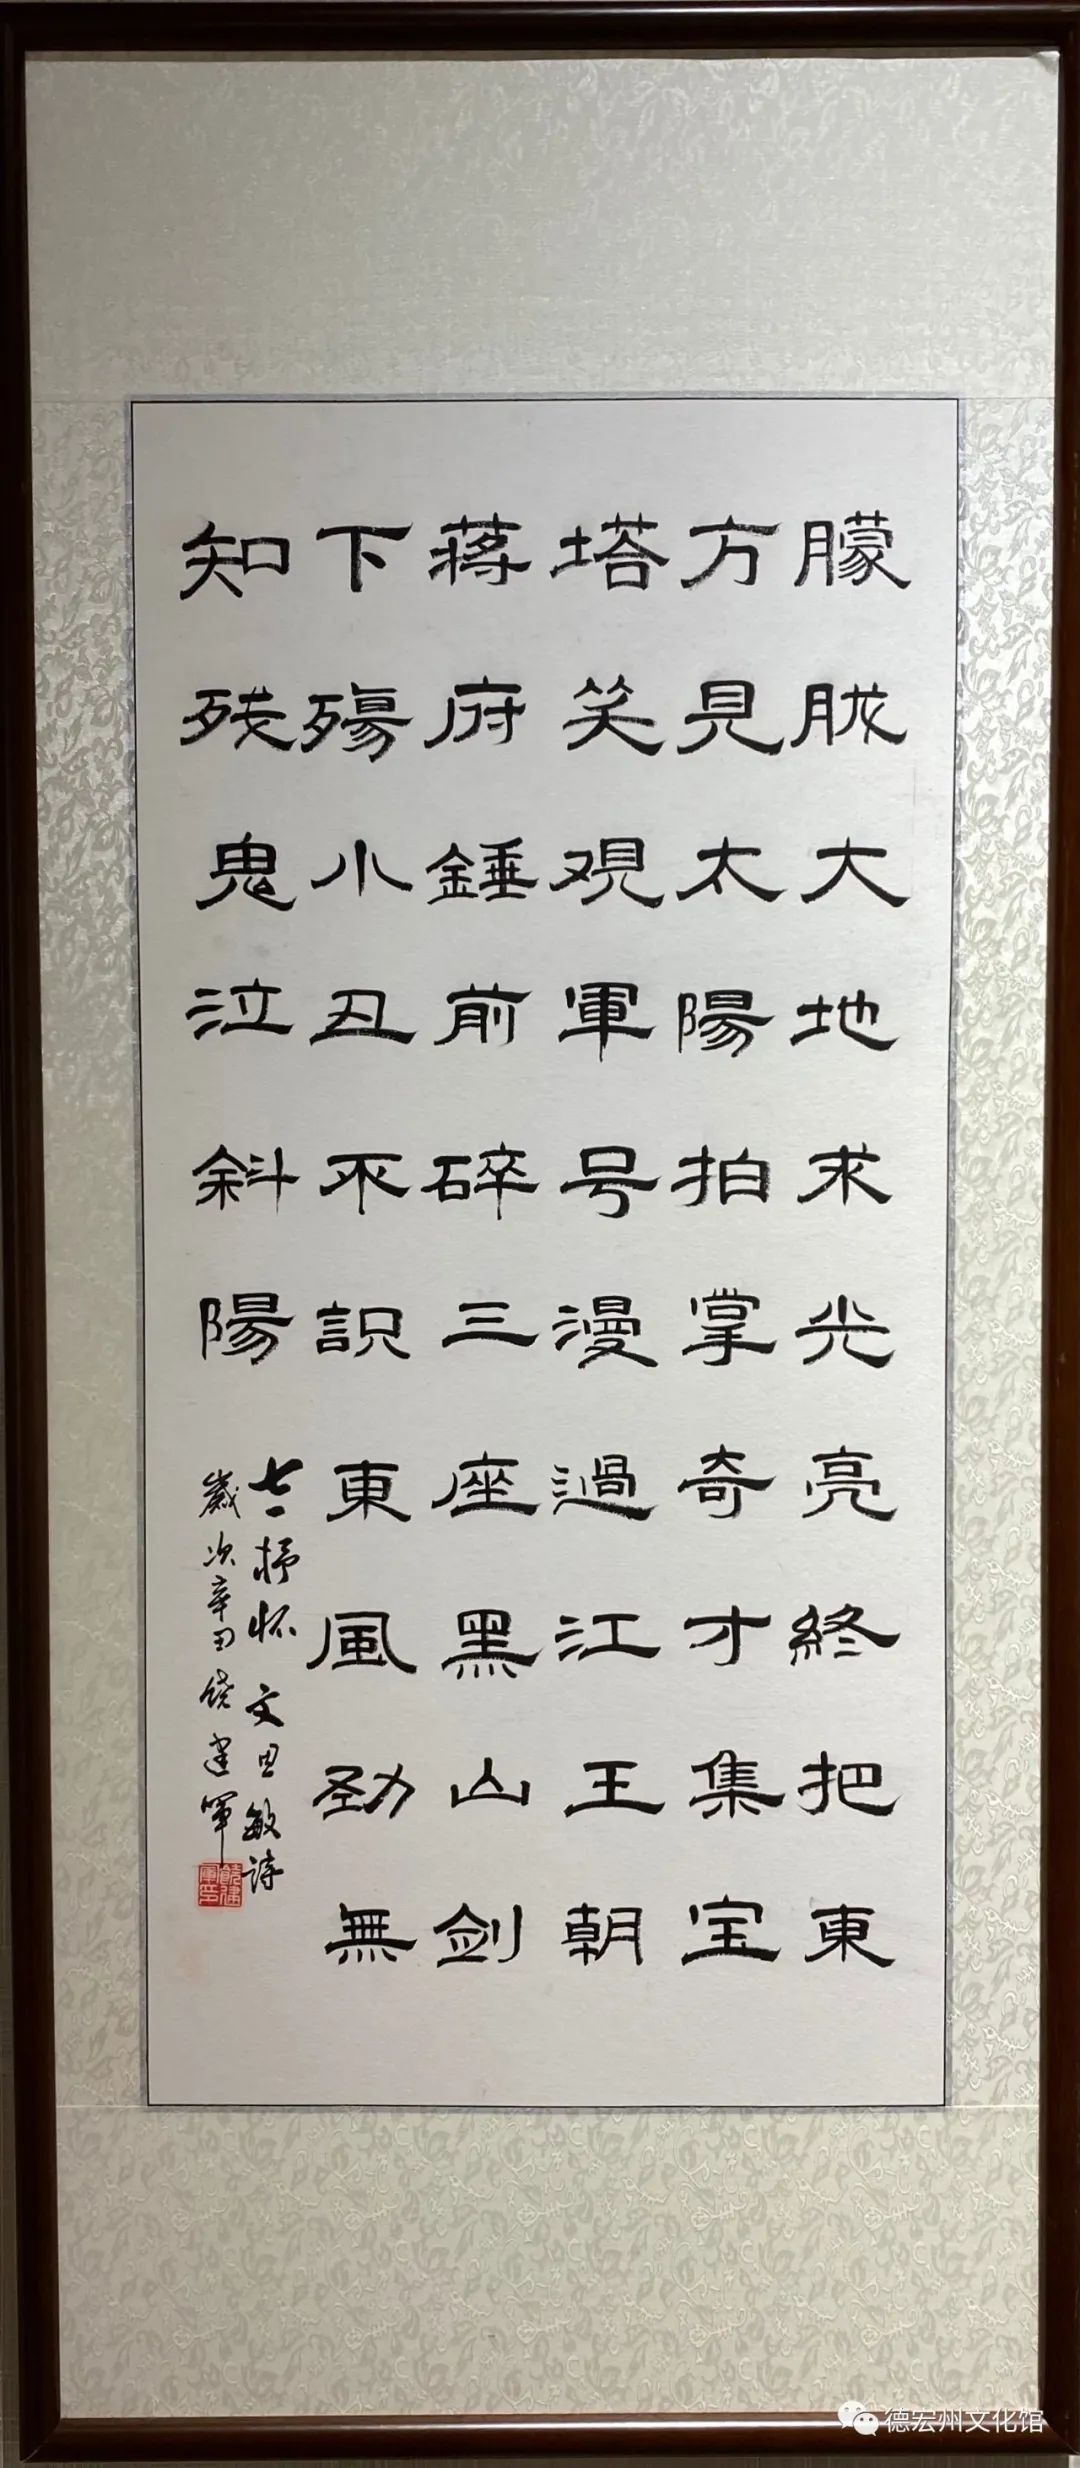 朦胧大地求光亮終把東
方見太陽拍掌奇才集宝
塔笑观軍号漫過江王朝
蒋府錘前碎三座黑山剑
下殤小丑不識東風劲無
知残鬼泣斜陽
七一抒怀 文思敏詩
歲次辛丑饶建军
德宏州文化馆